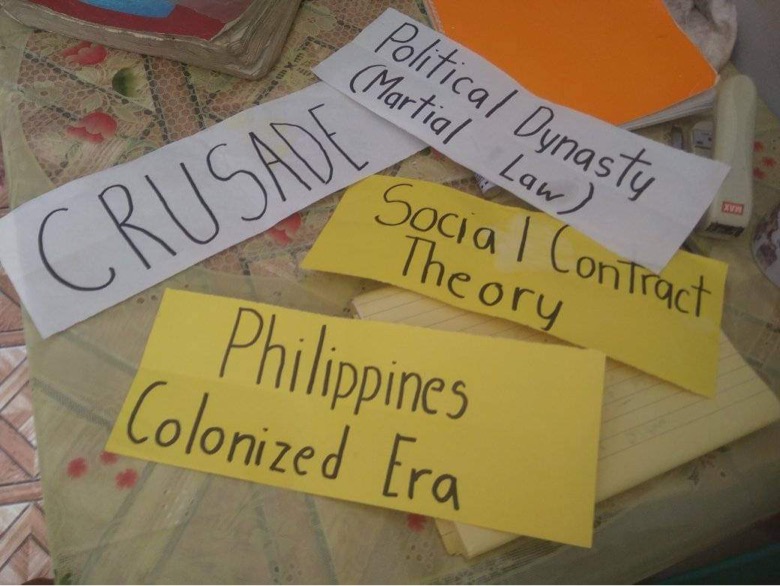 Political Dynasty
(Martial Law)
CRUSADE
Social Contract
Theory
Philippines
Colonized Era
MAX